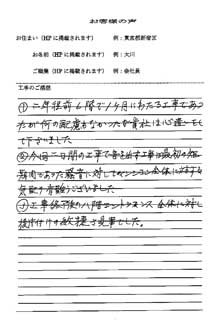 お客様の声
お住まい(HPに掲載されます) 例:東京都新宿区
お名前(HPに掲載されます) 例:大川
ご職業(HPに掲載されます) 例:会社員
工事のご感想
①二年程前6階で1ヶ月にわたる工事であっ
たが何の配慮もなかったが貴社は心遣いをして
下さいました
②今回二日間の工事で音を出す工事は最初の
時間であった騒音に対してのマンション全体に対する
気配り有難うございました
③工事終了後の八階エントランス全体に対し
後片付けの敏捷さ見事でした。